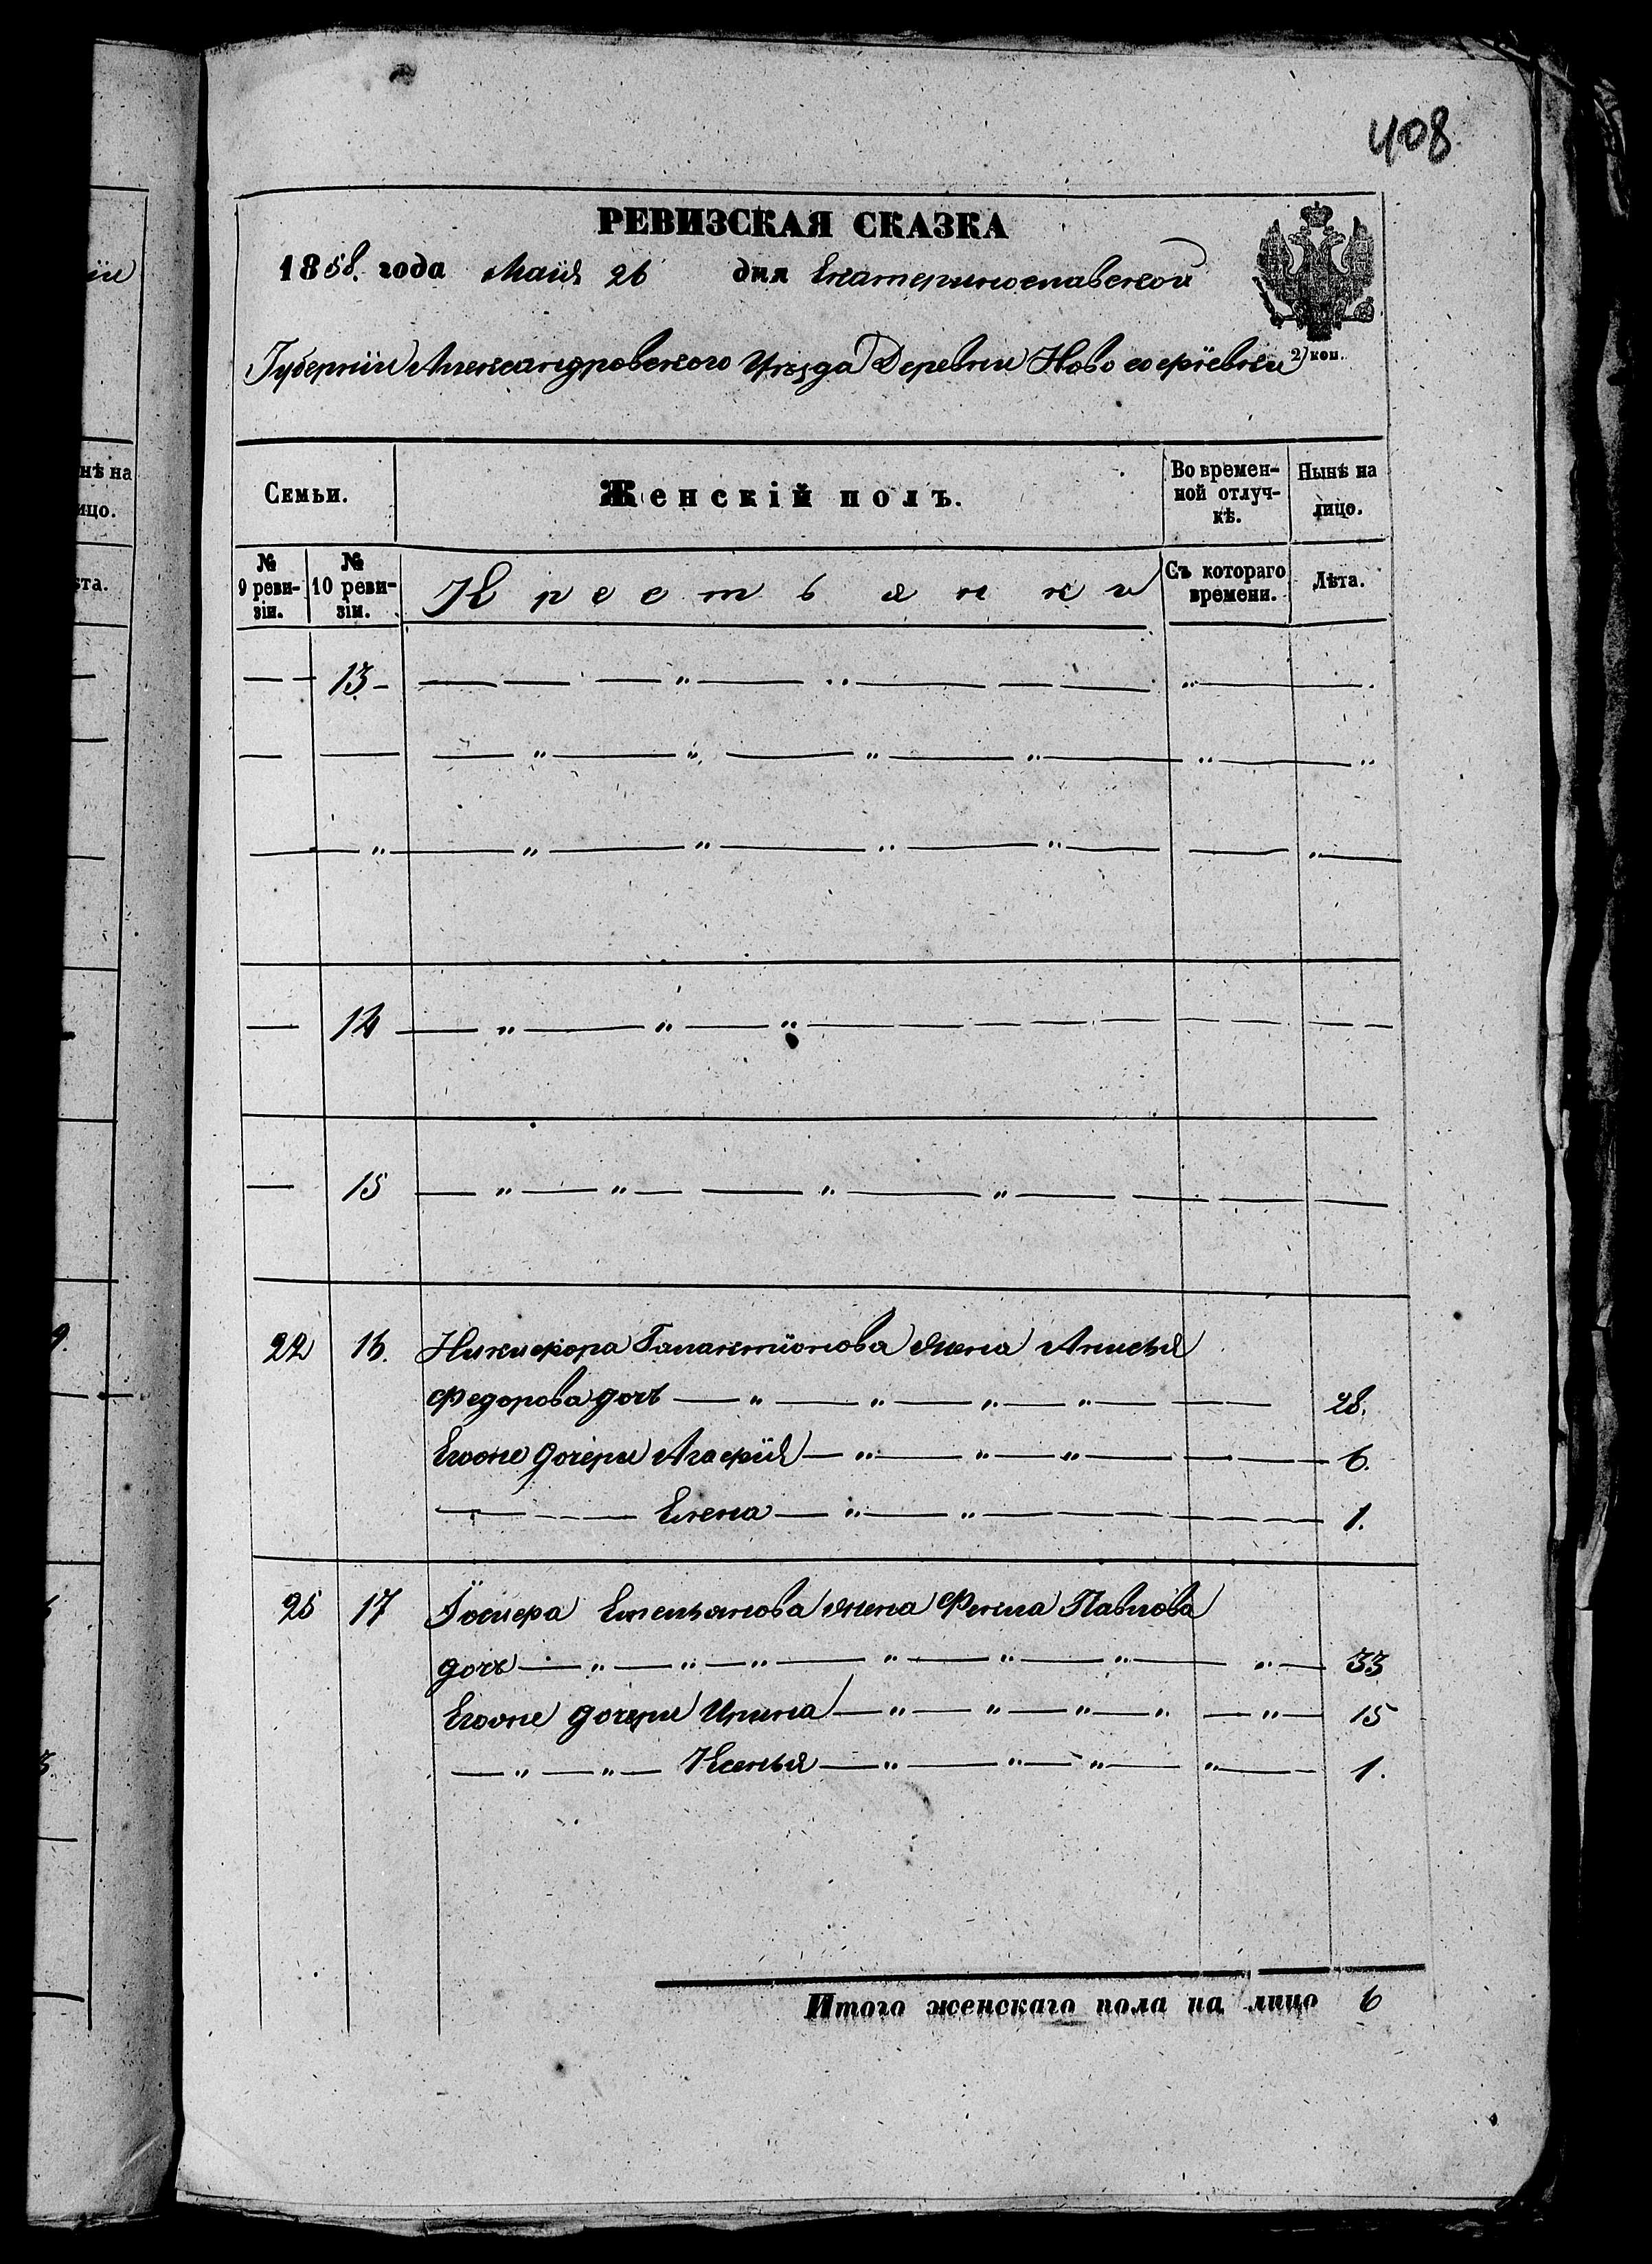 408
РЕВИЗСКАЯ СКАЗКА
1858. года Маія 26 дня Екатеринославской
Губерніи Александровского Уѣзда Деревни Ново софіевки
2 коп.
Семьи.
Женскій полъ.
Во времен-
ной отлуч-
кѣ.
Нынѣ на
лицо.
№
9 реви-
зіи.
№
10 реви-
зіи.
Крестьянки
Съ котораго
времени.
Лѣта.
13
14
15
22 16. Никифора Галактіонова жена Анисья
Федорова дочь 28.
Егоже дочери Агафія 6.
Елена 1.
25 17 Іосифа Емельянова жена Фекла Павлова
дочь 33
Егоже дочери Ирина 15
Ксенья 1.
Итого женскаго пола на лицо 6
нѣ на
ицо.
ѣта.